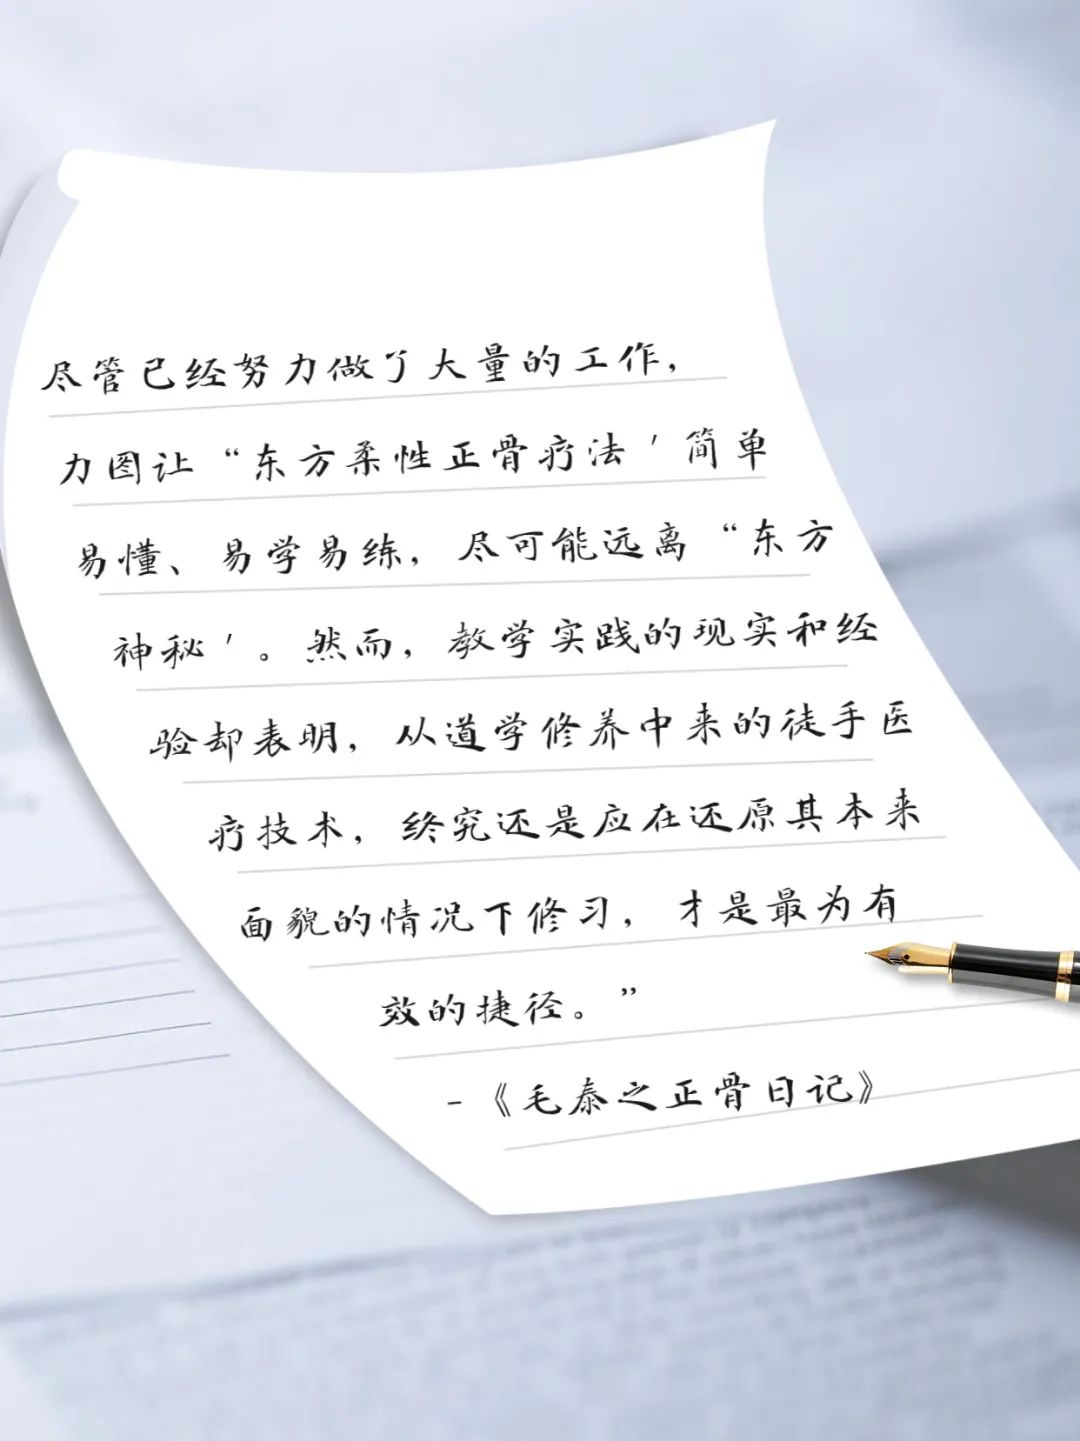 尽管已经努力做了大量的工作，
力图让“东方柔性正骨疗法＇简单
易懂、易学易练，尽可能远离“东方
神秘＇。然而，教学实践的现实和经
验却表明，从道学修养中来的徒手医
疗技术，终究还是应在还原其本来
面貌的情况下修习，才是最为有
效的捷径。”
-《毛泰之正骨日记》